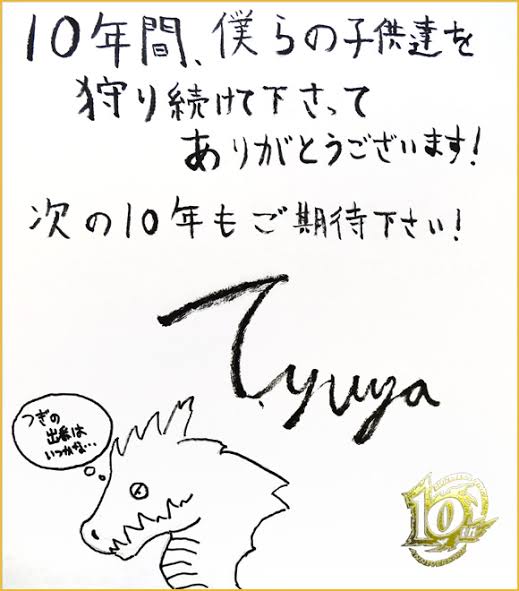 10年間、僕らの子供達を
狩り続けて下さって
ありがとうございます!
次の10年もご期待下さい!
T.yuya
つぎの
出番は
いつかな…
10th
ANNIVERSARY